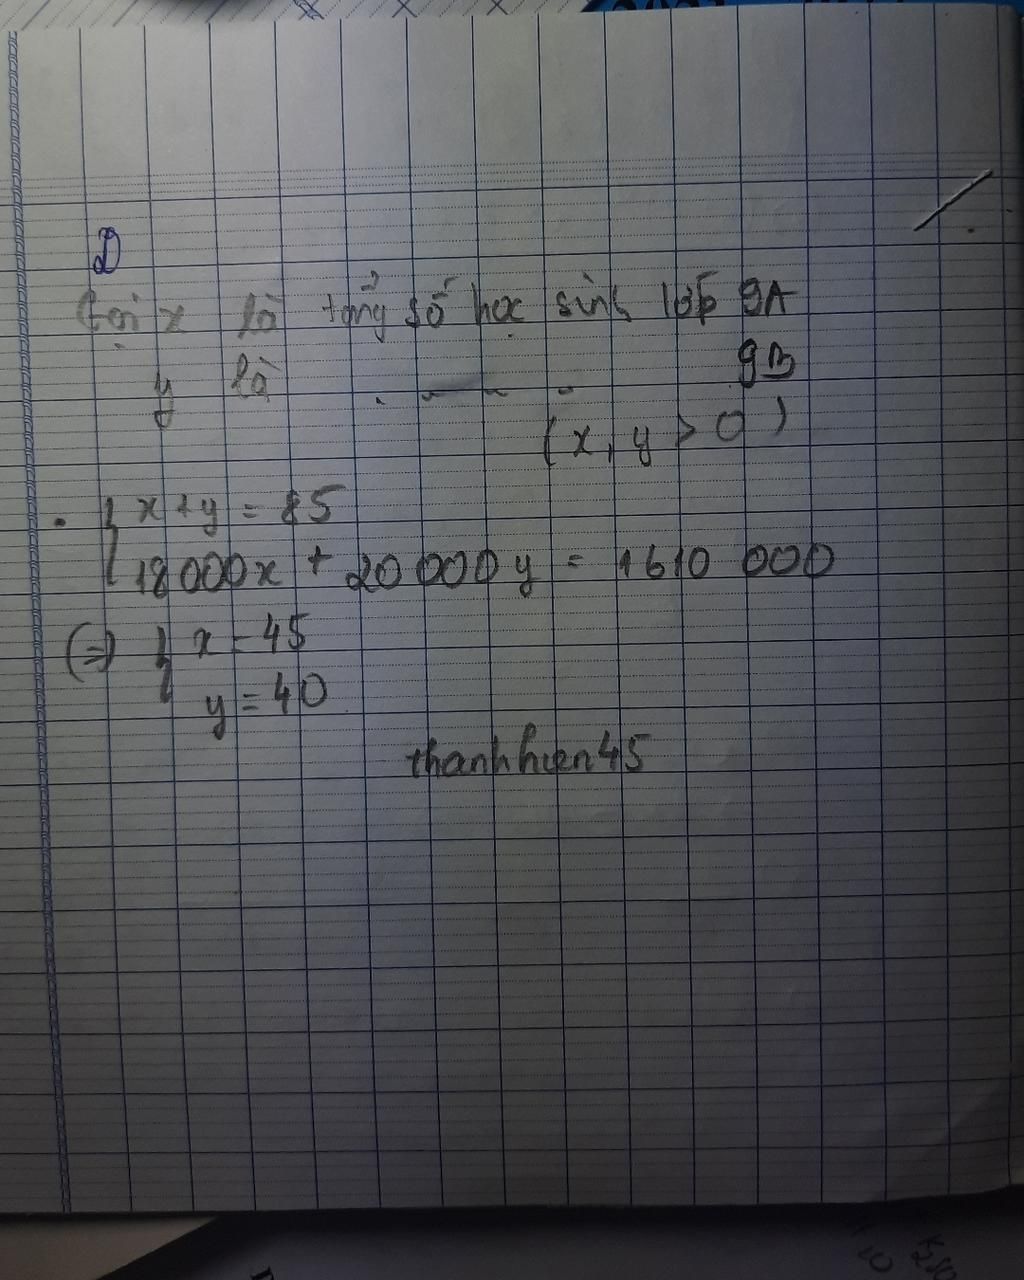 Gọi x là tổng số học sinh lớp 9A
y là . — — - 9B
(x, y > 0)
{ x + y = 85
18000x + 20000y = 1610 000
(=) { x = 45
y = 40
thanhhien45